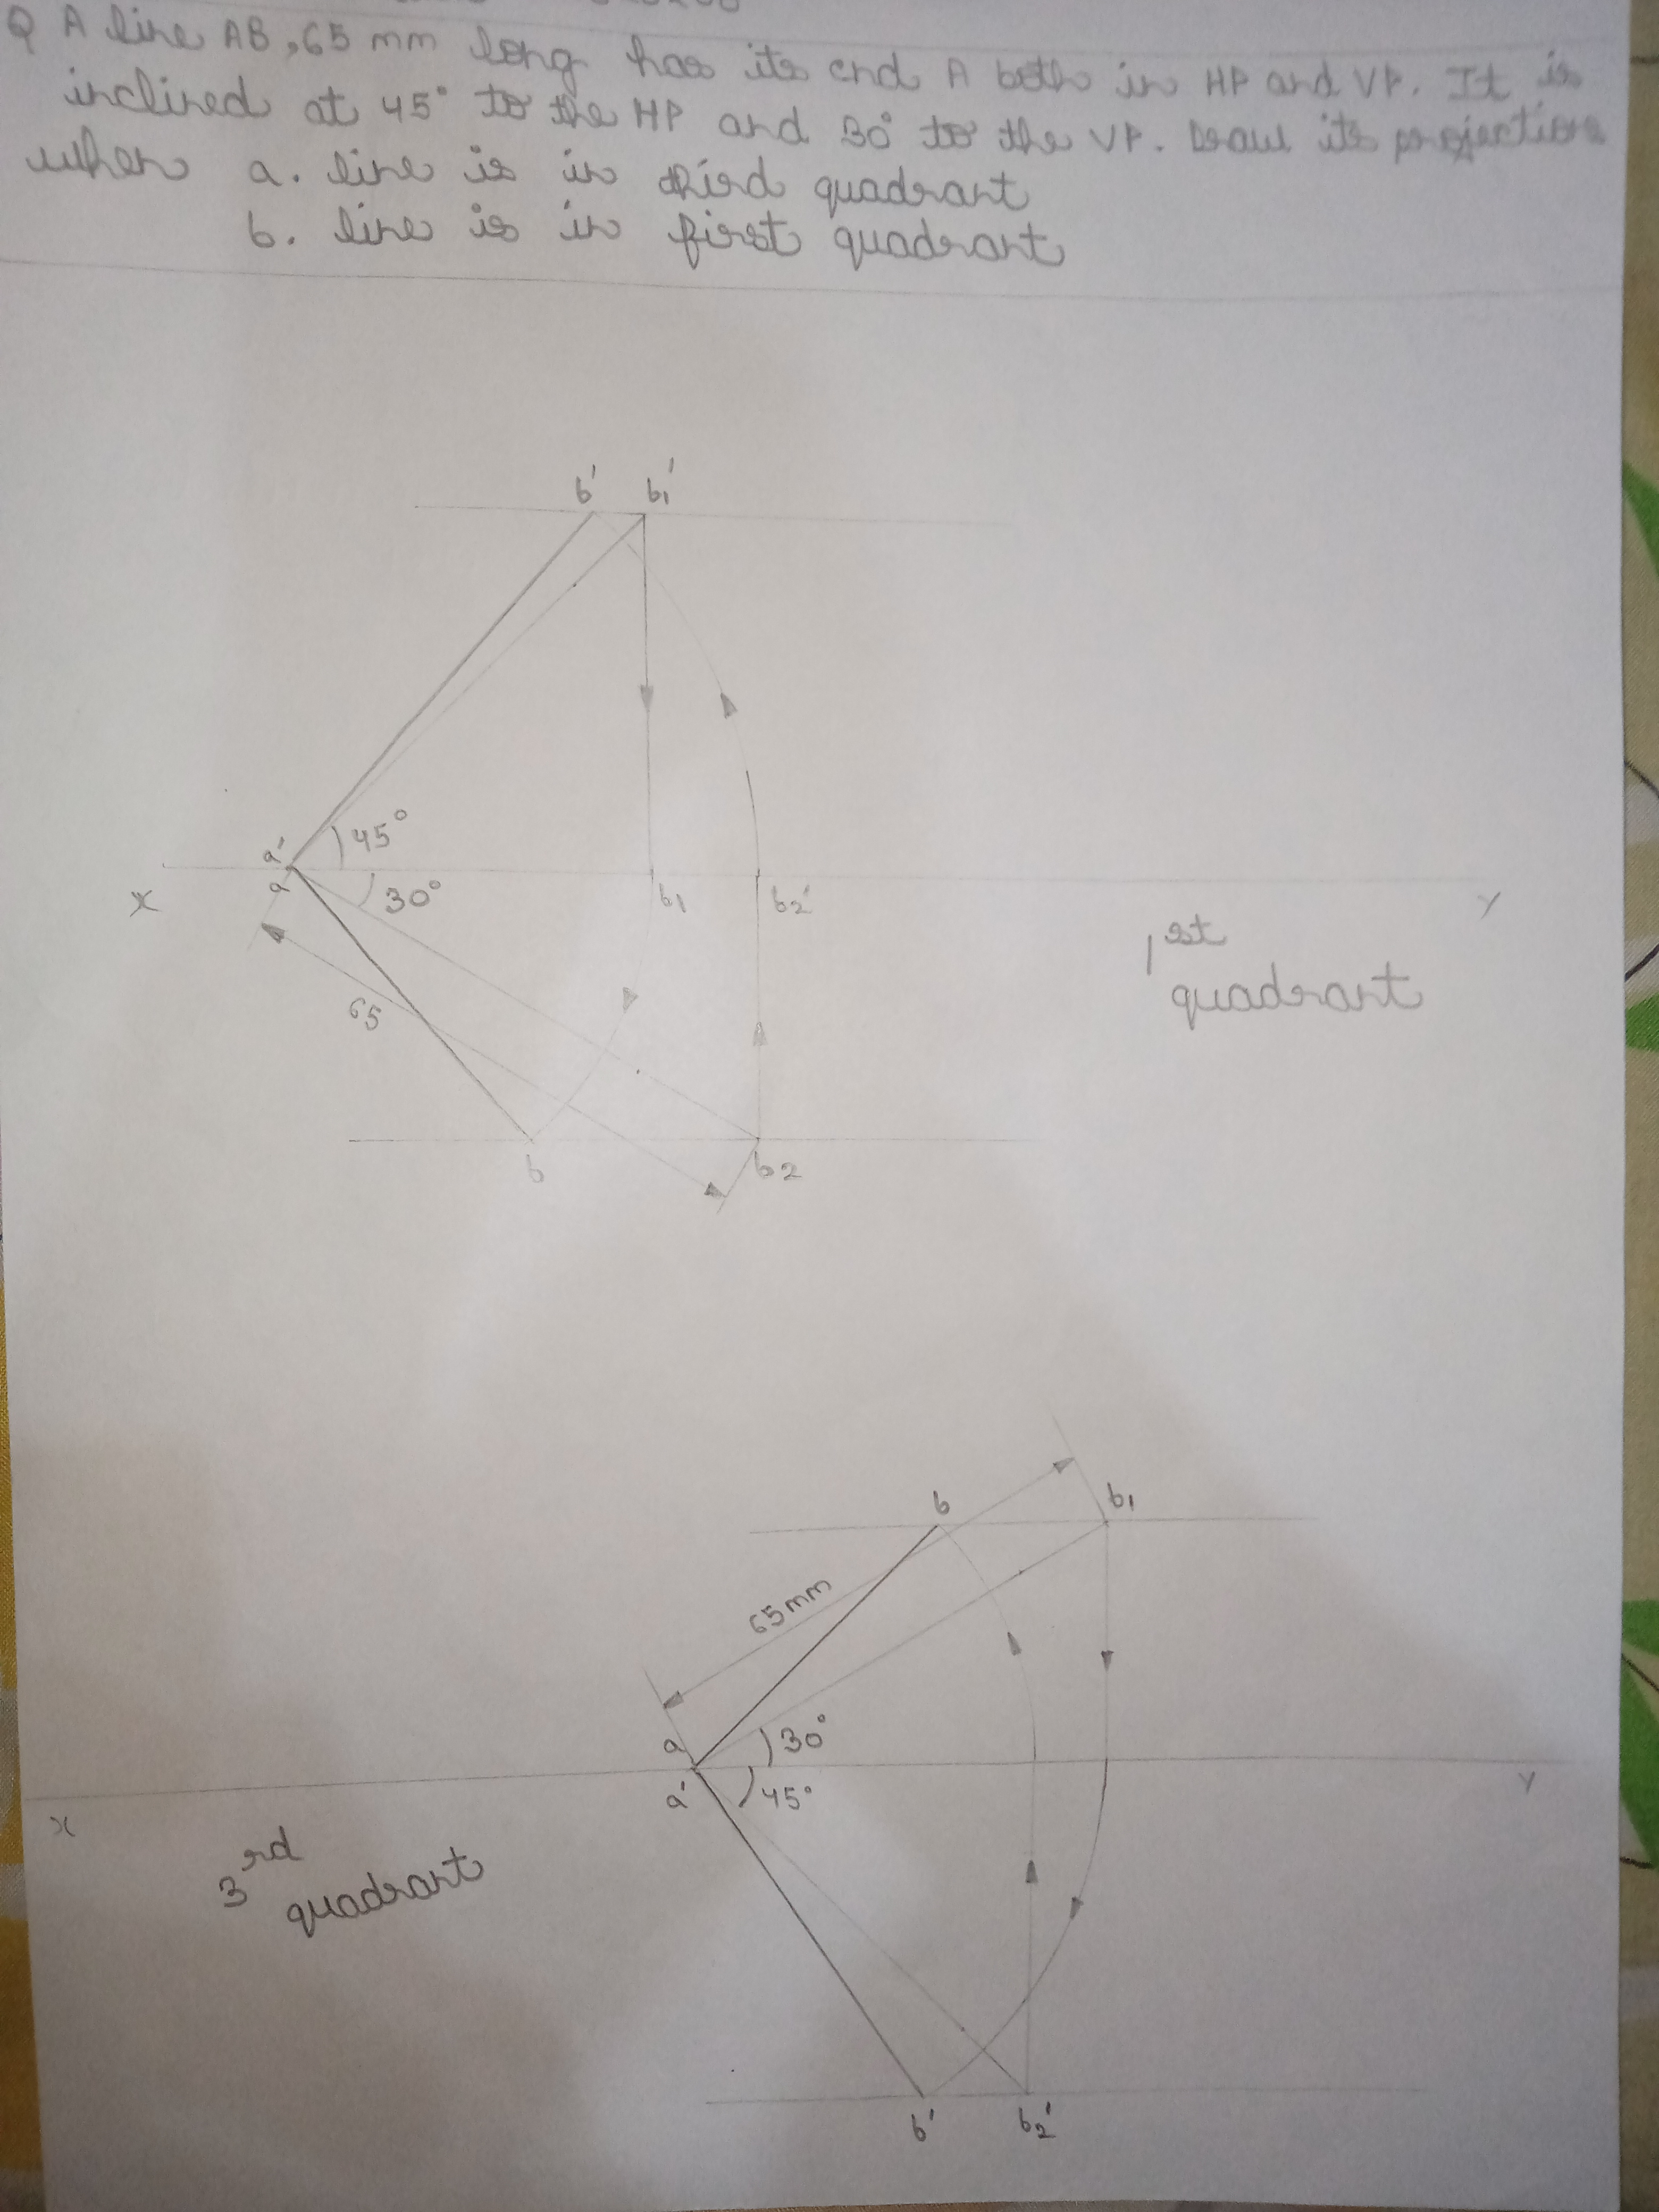 Q A line AB, 65 mm long has its end A both in HP and VP. It is
inclined at 45° to the HP and 30° to the VP. Draw its projections
when a. line is in third quadrant
b. line is in first quadrant
b' b1'
45°
a'
a
30°
x
b1 b2'
y
1st
quadrant
65
b
b2
b b1
65mm
a
30°
a'
45°
x
y
3rd
quadrant
b' b2'